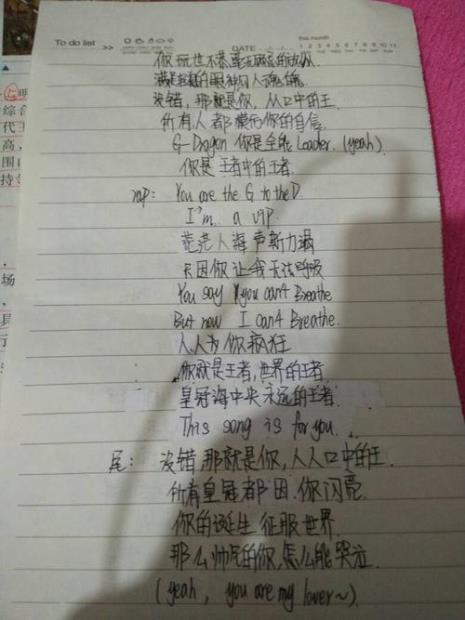 To do list >>
DATE
this month
1 2 3 4 5 6 7 8 9 10 11
你玩也不
满是的眼神勾人魂魄
没错，那就是你，人口中的王.
所有人都模仿你的自信.
G-Dragon 你是全能 Leader. (yeah)
你是王者中的王者.
rap: You are the G to the D.
I'm a VIP
茫茫人海声嘶力竭
只因你让我无法呼吸
You say you can't Breathe
But now I can't Breathe.
人人为你疯狂
你就是王者,世界的王者.
皇冠海中央永远的王者.
This song is for you.
尾: 没错,那就是你,人人口中的王.
所有皇冠都因你闪亮.
你的诞生征服世界.
那么帅气的你,怎么能哭泣.
(yeah, you are my lover~)
明
综合
代
高,
围
持
场